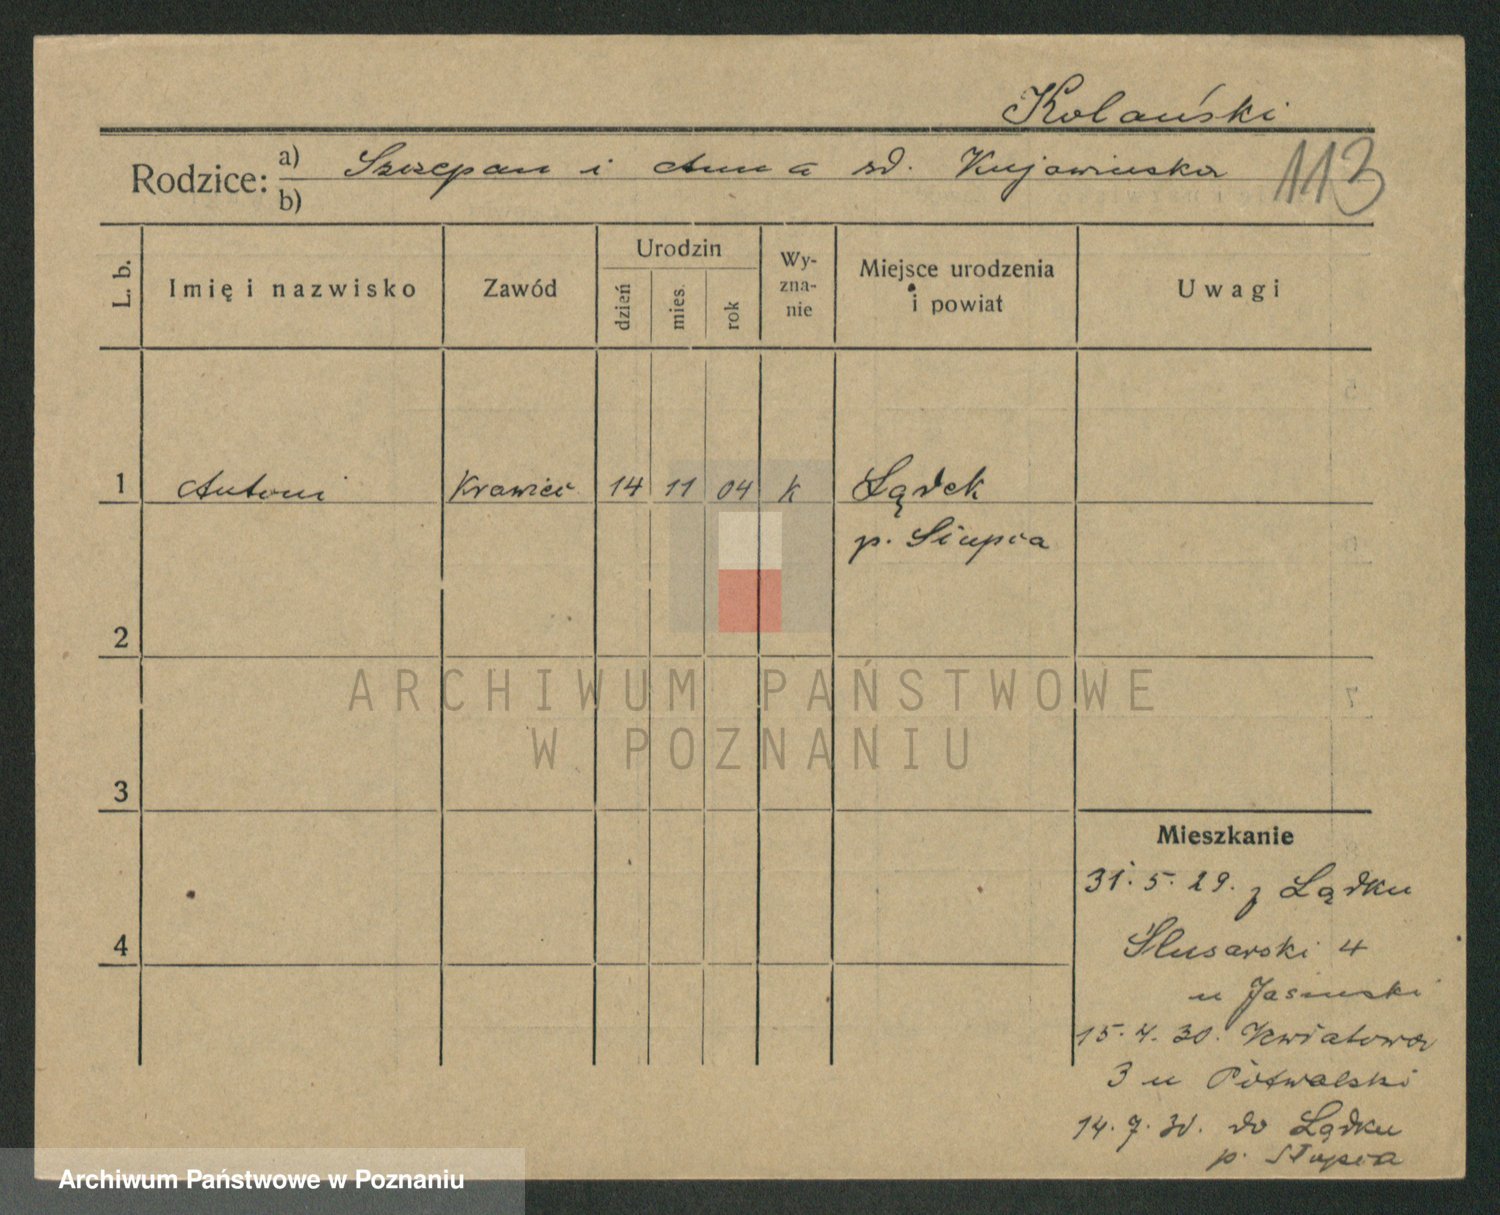 Kolański
Rodzice: a) Szczepan i Anna zd. Kujawińska
b)
113
L. b.
Imię i nazwisko
Zawód
Urodzin
dzień
mies.
rok
Wy-
zna-
nie
Miejsce urodzenia
i powiat
Uwagi
1 Antoni Krawiec 14 11 04 k Lądek
p. Słupca
2
3
4
Mieszkanie
31.5.29. z Lądku
Ślusarski 4
u Jasinski
15.4.30. Kwiatowa
3 u
14.7.30. do Lądku
p. Słupca
ARCHIWUM PAŃSTWOWE
W POZNANIU
Archiwum Państwowe w Poznaniu